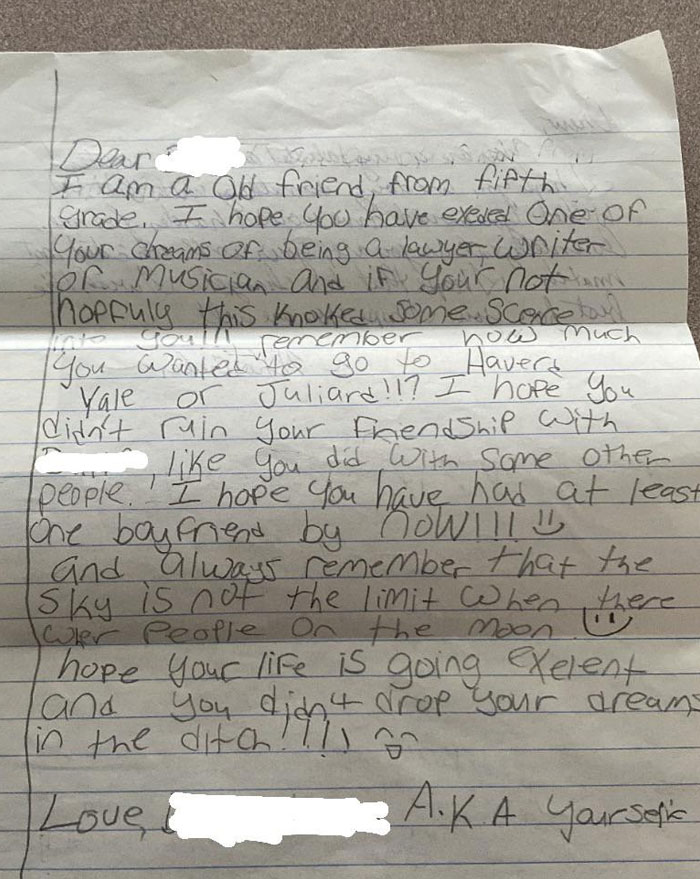 Dear
I am a Old friend from fifth
grade. I hope you have exeded One of
your dreams of being a lawyer, writer
or musician and if your not
hopfuly this knoked some scence
into you! remember how much
you wanted to go to Haverd
Yale or Juliard!!? I hope you
didn't ruin your friendship with
, like you did with some other
people. I hope you have had at least
One boyfriend by now!!!
and always remember that the
sky is not the limit when there
wer people on the moon
hope your life is going exelent
and you didn't drop your dreams
in the ditch!!!!
Love, A.K.A yourself